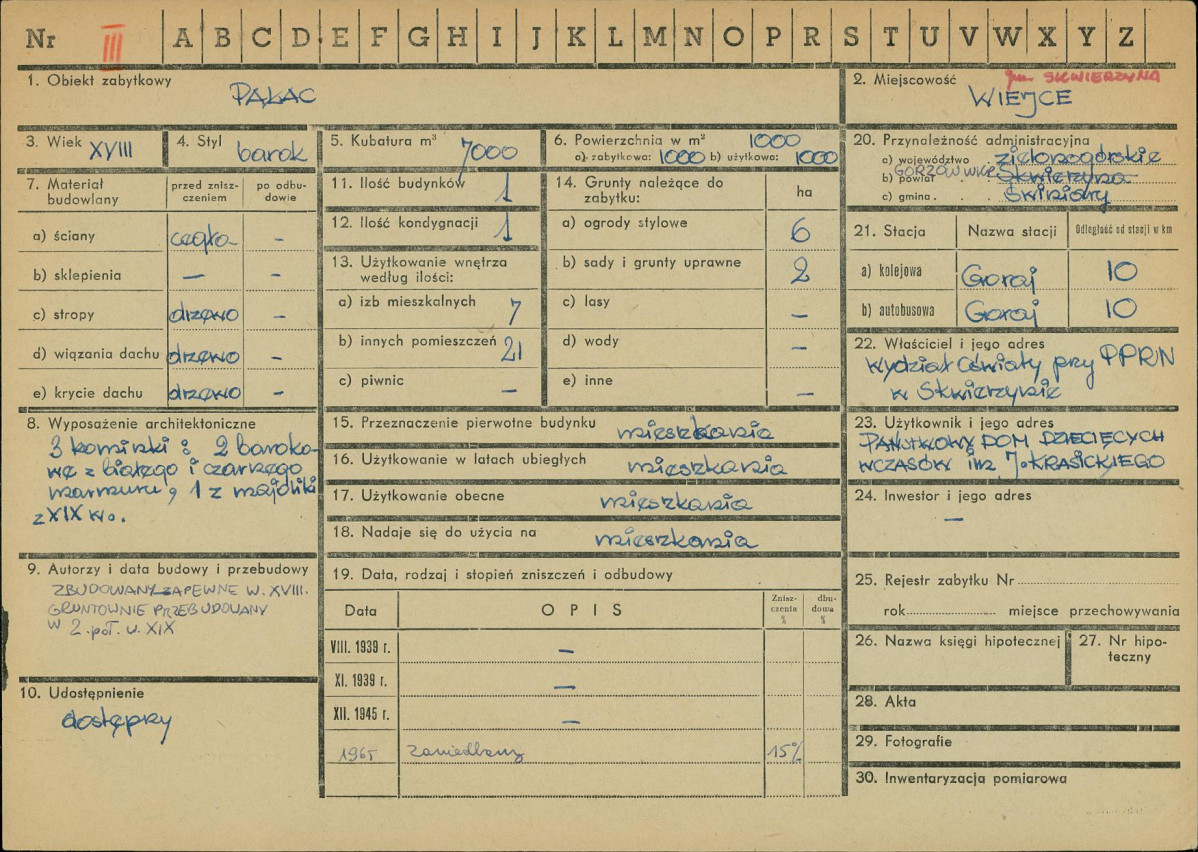 Nr III A B C D E F G H I J K L M N O P R S T U V W X Y Z
1. Obiekt zabytkowy
PAŁAC
2. Miejscowość
gm. SKWIERZYNA
WIEJCE
3. Wiek XVIII
4. Styl barok
5. Kubatura m³ 7000
6. Powierzchnia w m² 1000
a) zabytkowa: 1000 b) użytkowa: 1000
20. Przynależność administracyjna
a) województwo zielonogórskie
GORZÓW WKP.
b) powiat Skwierzyna
c) gmina Świniary
7. Materiał budowlany
przed znisz-
czeniem
po odbu-
dowie
a) ściany cegła –
b) sklepienia – –
c) stropy drzewo –
d) wiązania dachu drzewo –
e) krycie dachu drzewo –
11. Ilość budynków 1
12. Ilość kondygnacji 1
13. Użytkowanie wnętrza
według ilości:
a) izb mieszkalnych 7
b) innych pomieszczeń 21
c) piwnic –
14. Grunty należące do
zabytku:
ha
a) ogrody stylowe 6
b) sady i grunty uprawne 2
c) lasy –
d) wody –
e) inne –
21. Stacja Nazwa stacji Odległość od stacji w km
a) kolejowa Goraj 10
b) autobusowa Goraj 10
22. Właściciel i jego adres
Wydział Oświaty przy PPRN
w Skwierzynie
8. Wyposażenie architektoniczne
3 kominki : 2 baroko-
we z białego i czarnego
marmuru, 1 z majoliki
z XIX w.
15. Przeznaczenie pierwotne budynku mieszkania
16. Użytkowanie w latach ubiegłych mieszkania
17. Użytkowanie obecne mieszkania
18. Nadaje się do użycia na mieszkania
23. Użytkownik i jego adres
PAŃSTWOWY DOM DZIECIĘCYCH
WCZASÓW im J. KRASICKIEGO
24. Inwestor i jego adres
–
9. Autorzy i data budowy i przebudowy
ZBUDOWANY ZAPEWNE W. XVIII.
GRUNTOWNIE PRZEBUDOWANY
W 2. poł. w. XIX
10. Udostępnienie
dostępny
19. Data, rodzaj i stopień zniszczeń i odbudowy
Data OPIS
Znisz-
czenia
%
dbu-
dowa
%
VIII. 1939 r. –
XI. 1939 r. –
XII. 1945 r. –
1965 zaniedbany 15%
25. Rejestr zabytku Nr
rok miejsce przechowywania
26. Nazwa księgi hipotecznej
27. Nr hipo-
teczny
28. Akta
29. Fotografie
30. Inwentaryzacja pomiarowa